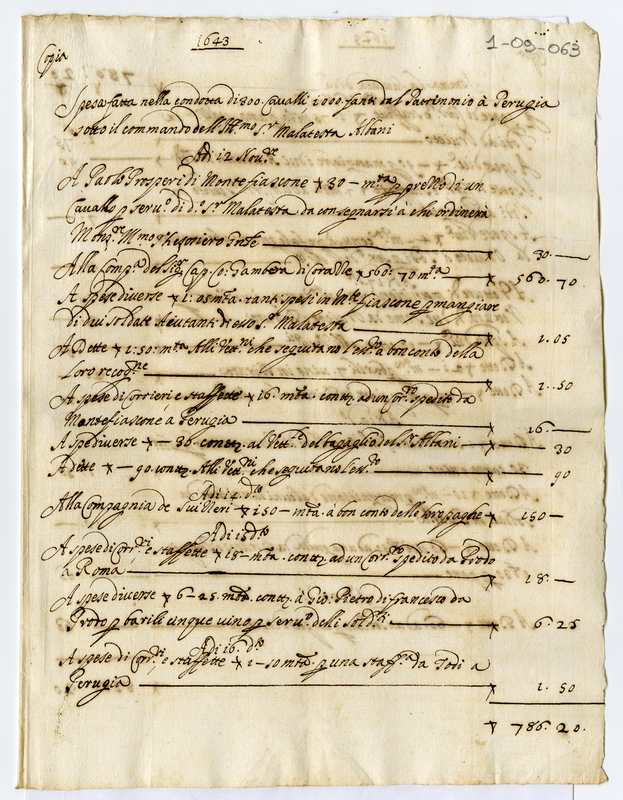 1643
1-09-063
Copia
Spesa fatta nella condotta di 800. Cavalli, i 000. fanti dal Patrimonio à Perugia
sotto il commando dell' Ill.mo S.r Malatesta Albani
Adi 12 Nou.re
A Paolo Prosperi di Montefiascone ▽ 30 – m.ta p prezzo di un
Cavallo p seru.o di d.o S.r Malatesta da consegnarsi à chi ordinerà
Mons.re Ill.mo Thesoriero Gnle ▽ 30. —
Alla Comp.a del Sig.r Cap. Co: Gambera di Coralle ▽ 560: 70 m.ta ▽ 560. 70
A spese diverse ▽ 1: 05 m.ta tanti spesi in Mte fiascone p mangiare
di dui soldati Aiutanti di esso S.r Malatesta ▽ 1. 05
A dette ▽ 1: 50: m.ta Alli Vett.ni che seguitano l'ess.to a bon conto della
loro recog.ne ▽ 1. 50
A spese di Corrieri è staffette ▽ 16. m.ta cont.ti ad un Cor.ro spedito da
Montefiascone à Perugia ▽ 16. —
A spe diverse ▽ — 30. cont.ti al Vett.le del bagaglio del S.r Albani ▽ — 30
A dette ▽ — 90. cont.ti Alli Vett.ni che seguitano l'ess.to ▽ — 90
Adi 14. d.to
Alla Compagnia de Suizzeri ▽ 150 – m.ta à bon conto delle loro paghe ▽ 150 —
Adi 15 d.to
A spese di Corr.ri è staffette ▽ 18 – m.ta cont.ti ad un Cor.ro spedito da Prodo
à Roma ▽ 18. —
A spese diverse ▽ 6 – 25. m.ta cont.ti à Gio: Pietro di Francesco da
Prodo p barili cinque vino p seru.o delli Sold.ti ▽ 6. 25
Adi 16. d.to
A spese di Corr.ri, è staffette ▽ 1 – 50 m.ta p una staff.a da Todi a
Perugia ▽ 1. 50
▽ 786. 20.